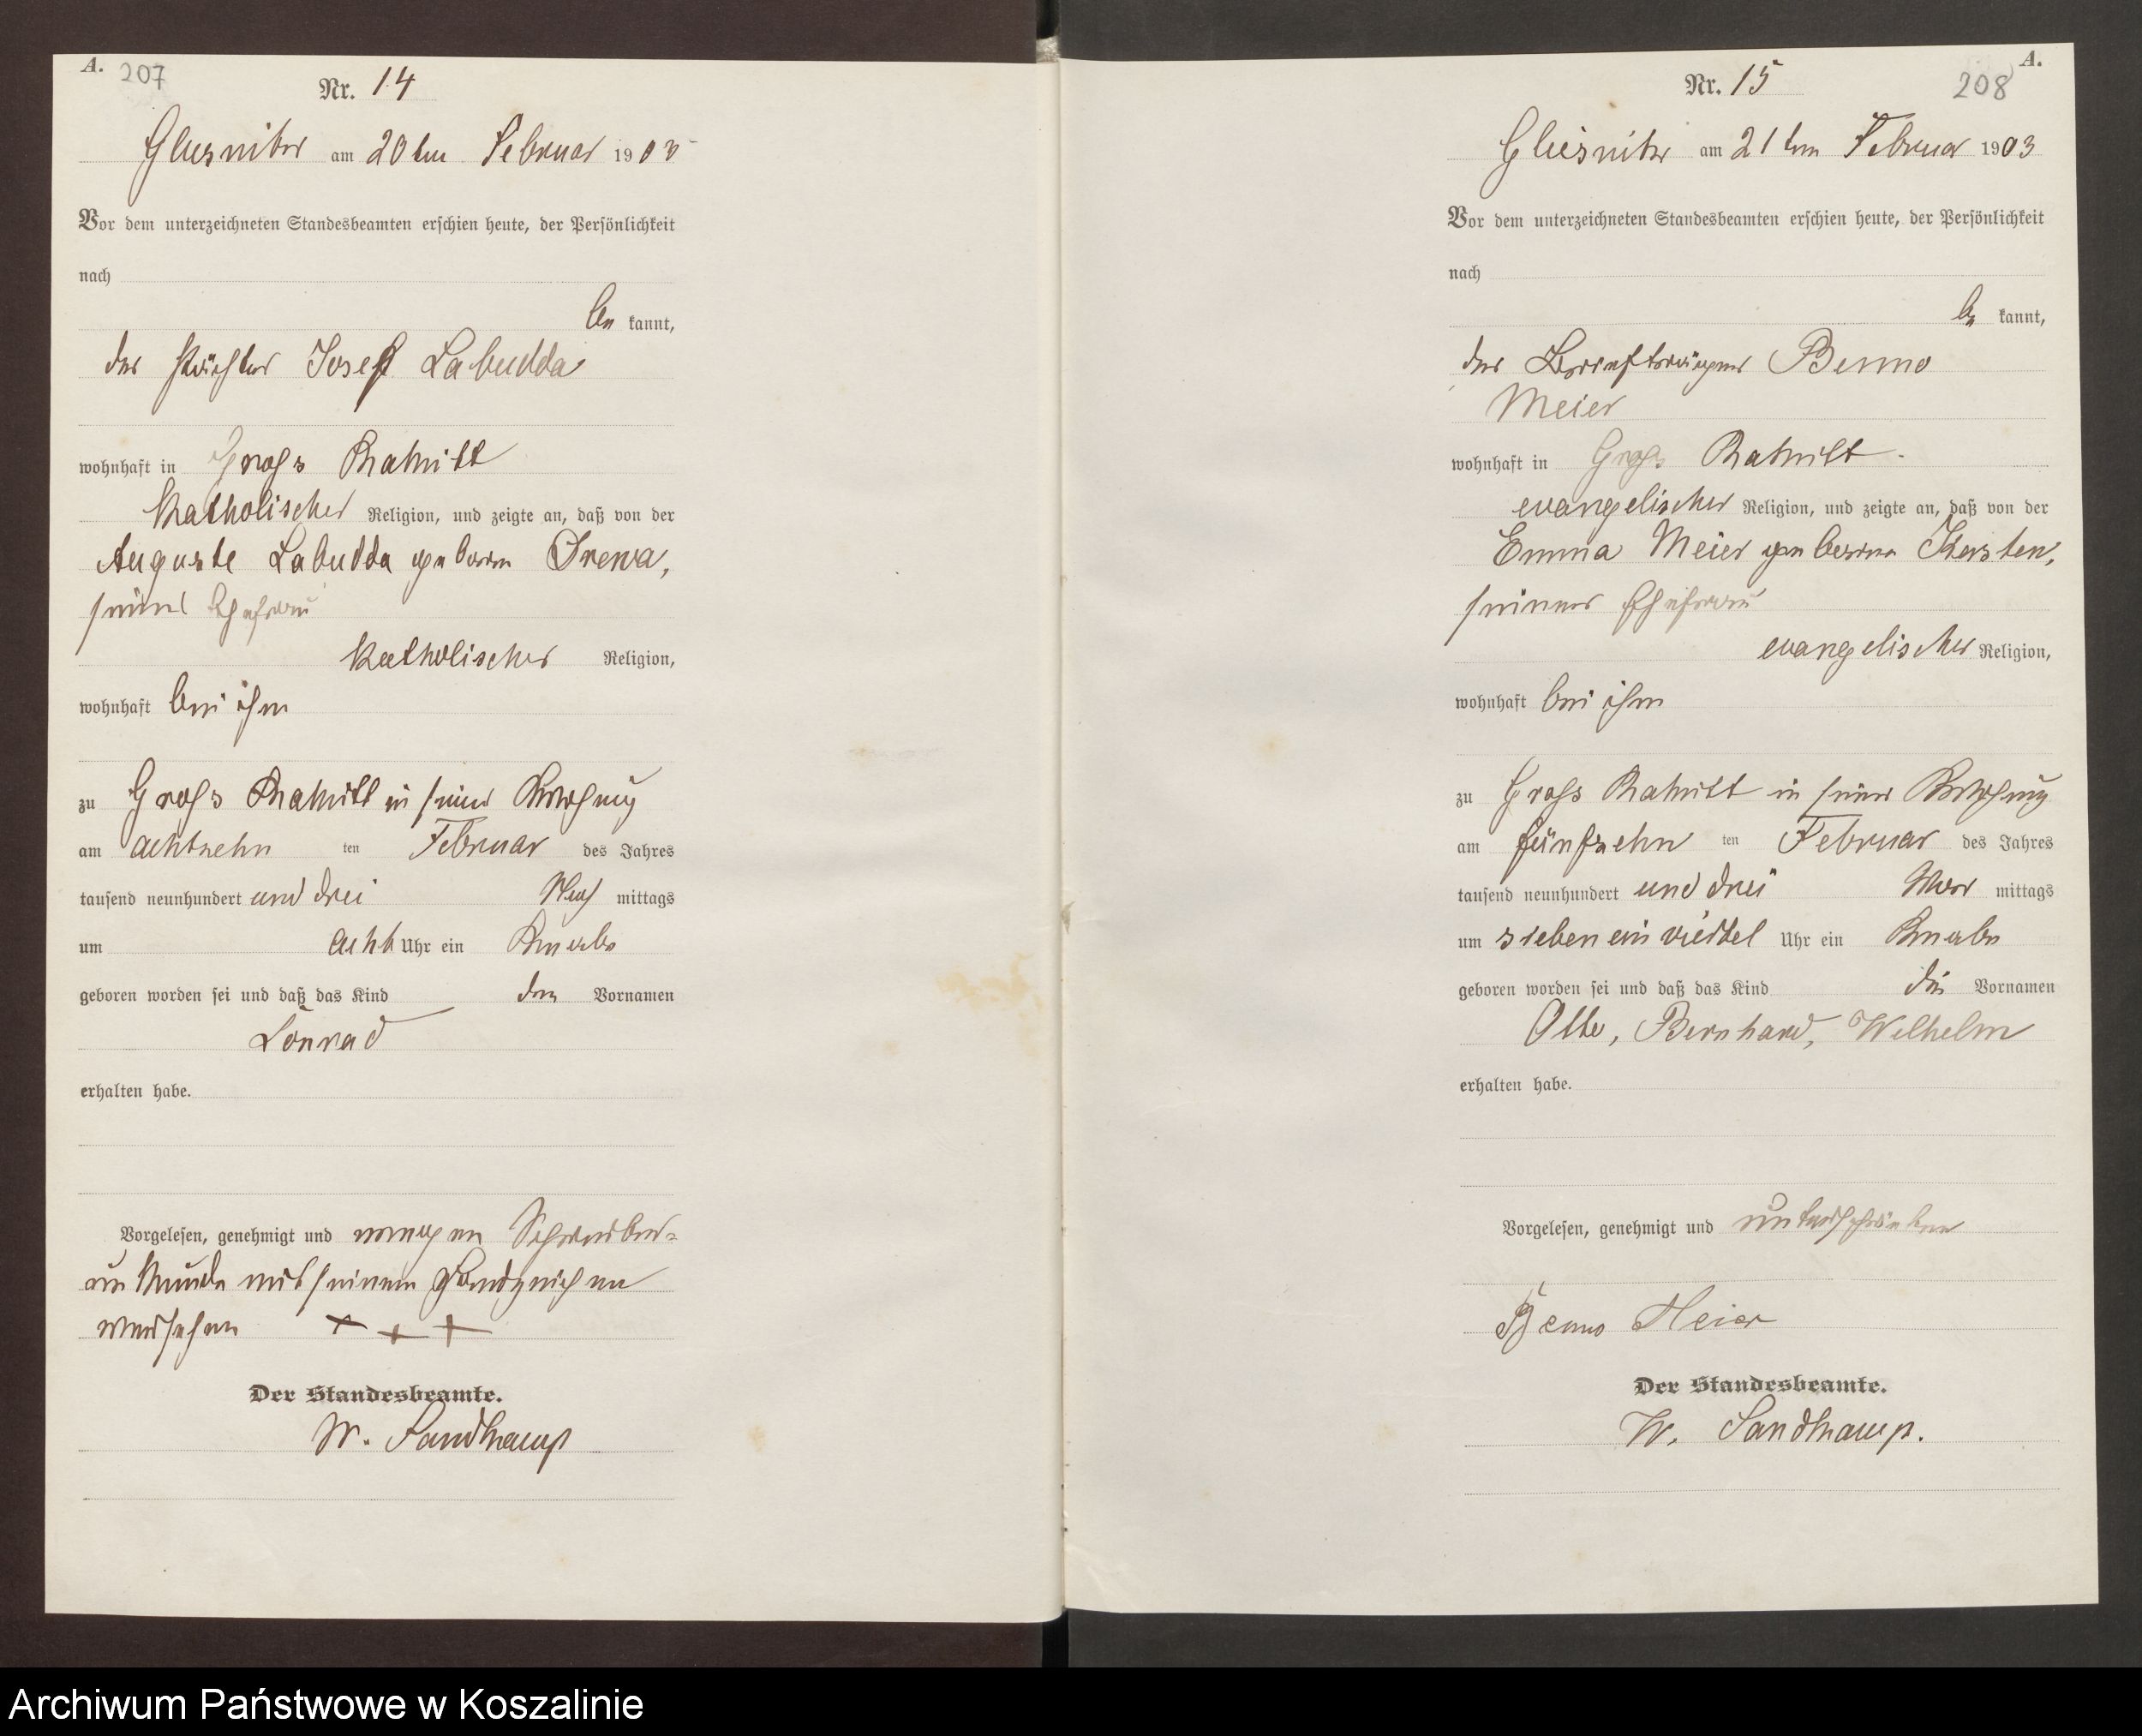 A. 207
Nr. 14
Glusnitz am 20ten Februar 1903
Vor dem unterzeichneten Standesbeamten erschien heute, der Persönlichkeit
nach
be kannt,
der Pächter Josef Labudda
wohnhaft in Gross Rakitt
katholischer Religion, und zeigte an, daß von der
Auguste Labudda geboren Drewa,
seiner Ehefrau
katholischer Religion,
wohnhaft bei ihm
zu Gross Rakitt in seiner Wohnung
am achtzehn ten Februar des Jahres
tausend neunhundert und drei Nach mittags
um acht Uhr ein Knabe
geboren worden sei und daß das Kind den Vornamen
Konrad
erhalten habe.
Vorgelesen, genehmigt und wegen Schreibens-
unkunde mit seinem Handzeichen
versehen + + +
Der Standesbeamte.
W. Sandkamp
A.
Nr. 15 208
Glusnitz am 21ten Februar 1903
Vor dem unterzeichneten Standesbeamten erschien heute, der Persönlichkeit
nach
be kannt,
der Briefträger Benno
Meier
wohnhaft in Gross Rakitt.
evangelischer Religion, und zeigte an, daß von der
Emma Meier geborene Kersten,
seiner Ehefrau
evangelischer Religion,
wohnhaft bei ihm
zu Gross Rakitt in seiner Wohnung
am fünfzehn ten Februar des Jahres
tausend neunhundert und drei Vor mittags
um sieben ein viertel Uhr ein Knabe
geboren worden sei und daß das Kind die Vornamen
Otto, Bernhard, Wilhelm
erhalten habe.
Vorgelesen, genehmigt und unterschrieben
Benno Meier
Der Standesbeamte.
W. Sandkamp.
Archiwum Państwowe w Koszalinie